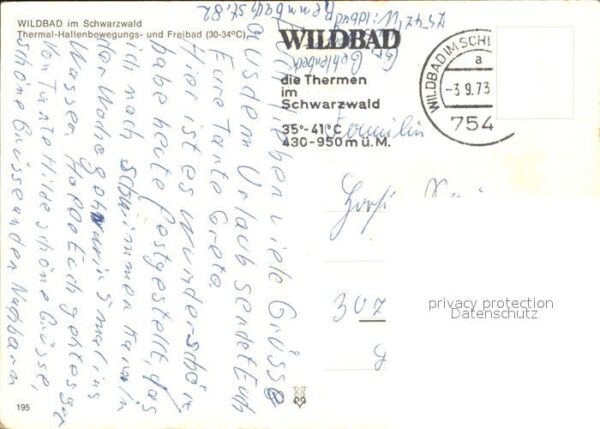 WILDBAD im Schwarzwald
Thermal-Hallenbewegungs- und Freibad (30-34°C)
Ihr lieben viele Grüsse
aus dem Urlaub sendet Euch
Eure Tante Greta
Hier ist es wunderschön
habe heute festgestellt, das
ich noch schwimmen kann in
der Woche gehn wir 5 mal ins
Wasser. Hoffe Euch geht es gut
von Tante Hilde schöne Grüsse,
schöne Grüsse an den Nachbarn
7547 Wildbad
WILDBAD
die Thermen
im
Schwarzwald
35°-41°C
430-950 m ü. M.
WILDBAD IM SCH
a
-3.9.73
754
Familie
307
privacy protection
Datenschutz
195